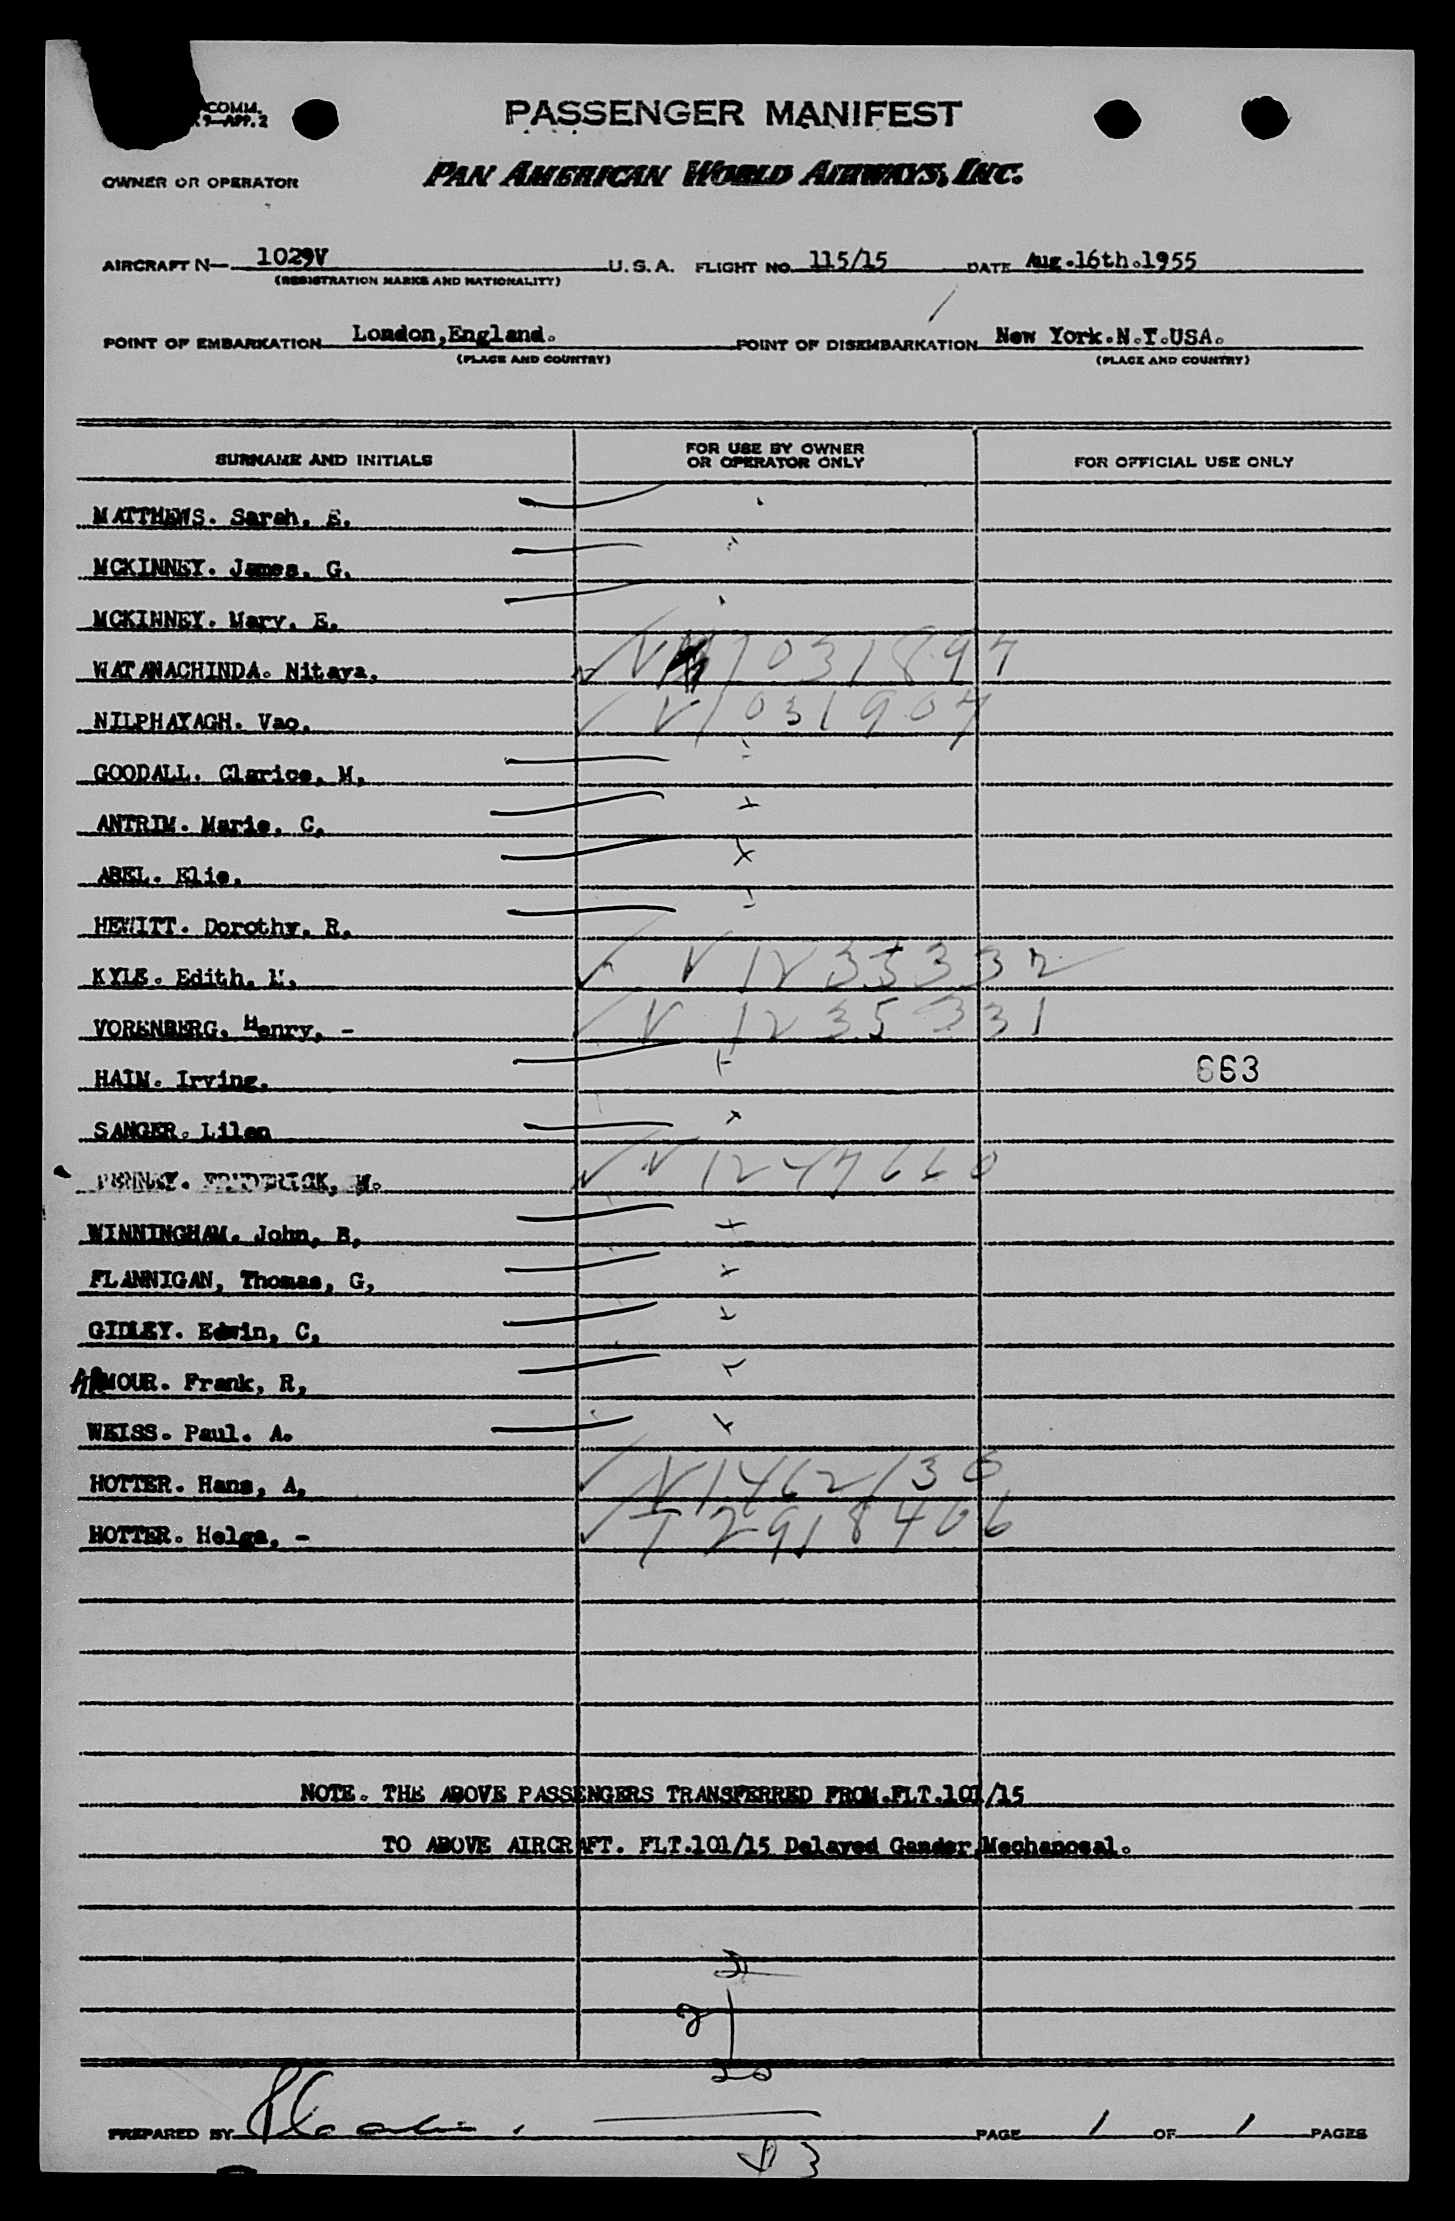 COMM.
9—APP. 2
PASSENGER MANIFEST
OWNER OR OPERATOR
PAN AMERICAN WORLD AIRWAYS, INC.
AIRCRAFT N— 1029V U. S. A. FLIGHT NO. 115/15 DATE Aug.16th.1955
(REGISTRATION MARKS AND NATIONALITY)
POINT OF EMBARKATION London,England. POINT OF DISEMBARKATION New York.N.Y.USA.
(PLACE AND COUNTRY) (PLACE AND COUNTRY)
SURNAME AND INITIALS FOR USE BY OWNER OR OPERATOR ONLY FOR OFFICIAL USE ONLY
MATTHEWS. Sarah. E.
MCKINNEY. James. G.
MCKINNEY. Mary. E.
WATANACHINDA. Nitaya. V 1031897
NILPHAYAGH. Vao. V 1031907
GOODALL. Clarice. M.
ANTRIM. Marie. C.
ABEL. Elie.
HEWITT. Dorothy. R.
KYLE. Edith. V 1235332
VORENBERG. Henry. - V 1235331
HAIM. Irving. 663
SANGER. Lilen
PENNEY. FREDERICK, M. V 1247660
WINNINGHAM. John, B,
FLANNIGAN, Thomas, G,
GIDLEY. Edwin, C,
ARMOUR. Frank, R,
WEISS. Paul. A.
HOTTER. Hans, A, V 1462136
HOTTER. Helga, - T 2918406
NOTE. THE ABOVE PASSENGERS TRANSFERRED FROM.FLT.101/15
TO ABOVE AIRCRAFT. FLT.101/15 Delayed Gander.Mechanocal.
21
2
22
PREPARED BY PAGE 1 OF 1 PAGES
43